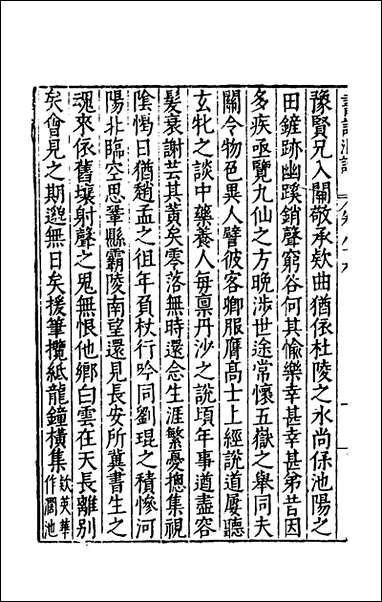 豫賢兄入關敬承欵曲猶依杜陵之水尚保池陽之
田鏟跡幽蹊銷聲窮谷何其愉樂幸甚幸甚弟昔因
多疾亟覽九仙之方晚涉世途常懷五嶽之舉同夫
關令物色異人譬彼客卿服膺髙士上經說道屢聽
玄牝之談中藥養人每禀丹沙之說頃年事遒盡容
髮衰謝芸其黃矣零落無時還念生涯繁憂揔集視
陰愒日猶趙孟之徂年負杖行吟同劉琨之積慘河
陽北臨空思鞏縣霸陵南望還見長安所冀書生之
魂來依舊壤射聲之鬼無恨他鄉白雲在天長離別
矣會見之期邈無日矣援筆攬紙龍鐘橫集英華作池